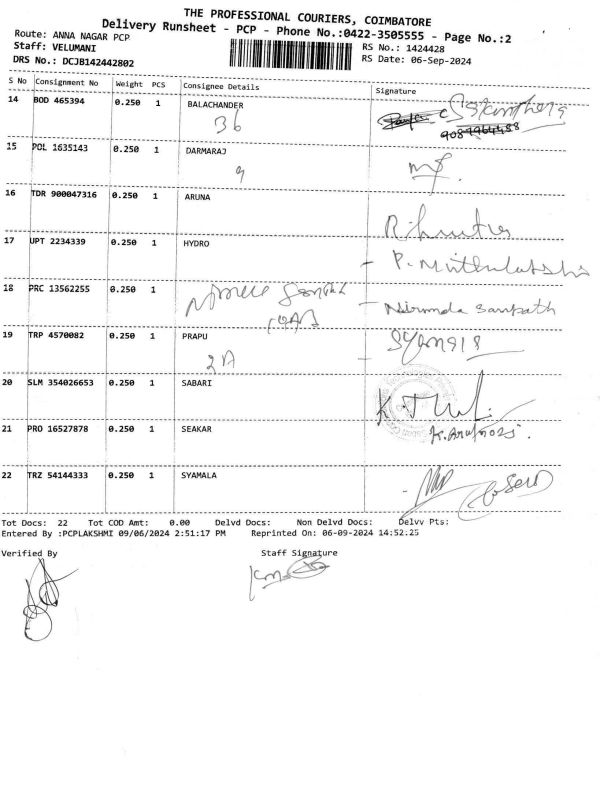 THE PROFESSIONAL COURIERS, COIMBATORE
Delivery Runsheet - PCP - Phone No.:0422-3505555 - Page No.:2
Route: ANNA NAGAR PCP
RS No.: 1424428
Staff: VELUMANI
RS Date: 06-Sep-2024
DRS No.: DCJB142442802
S No Consignment No Weight PCS Consignee Details Signature
14 BOD 465394 0.250 1 BALACHANDER
36
15 POL 1635143 0.250 1 DARMARAJ
9
16 TDR 900047316 0.250 1 ARUNA
17 UPT 2234339 0.250 1 HYDRO
- P. Muthulakshi
18 PRC 13562255 0.250 1
- Nirmala Sampath
19 TRP 4570082 0.250 1 PRAPU
2A
20 SLM 354026653 0.250 1 SABARI
21 PRO 16527878 0.250 1 SEAKAR
22 TRZ 54144333 0.250 1 SYAMALA
Tot Docs: 22 Tot COD Amt: 0.00 Delvd Docs: Non Delvd Docs: Delvv Pts:
Entered By :PCPLAKSHMI 09/06/2024 2:51:17 PM Reprinted On: 06-09-2024 14:52:25
Verified By Staff Signature